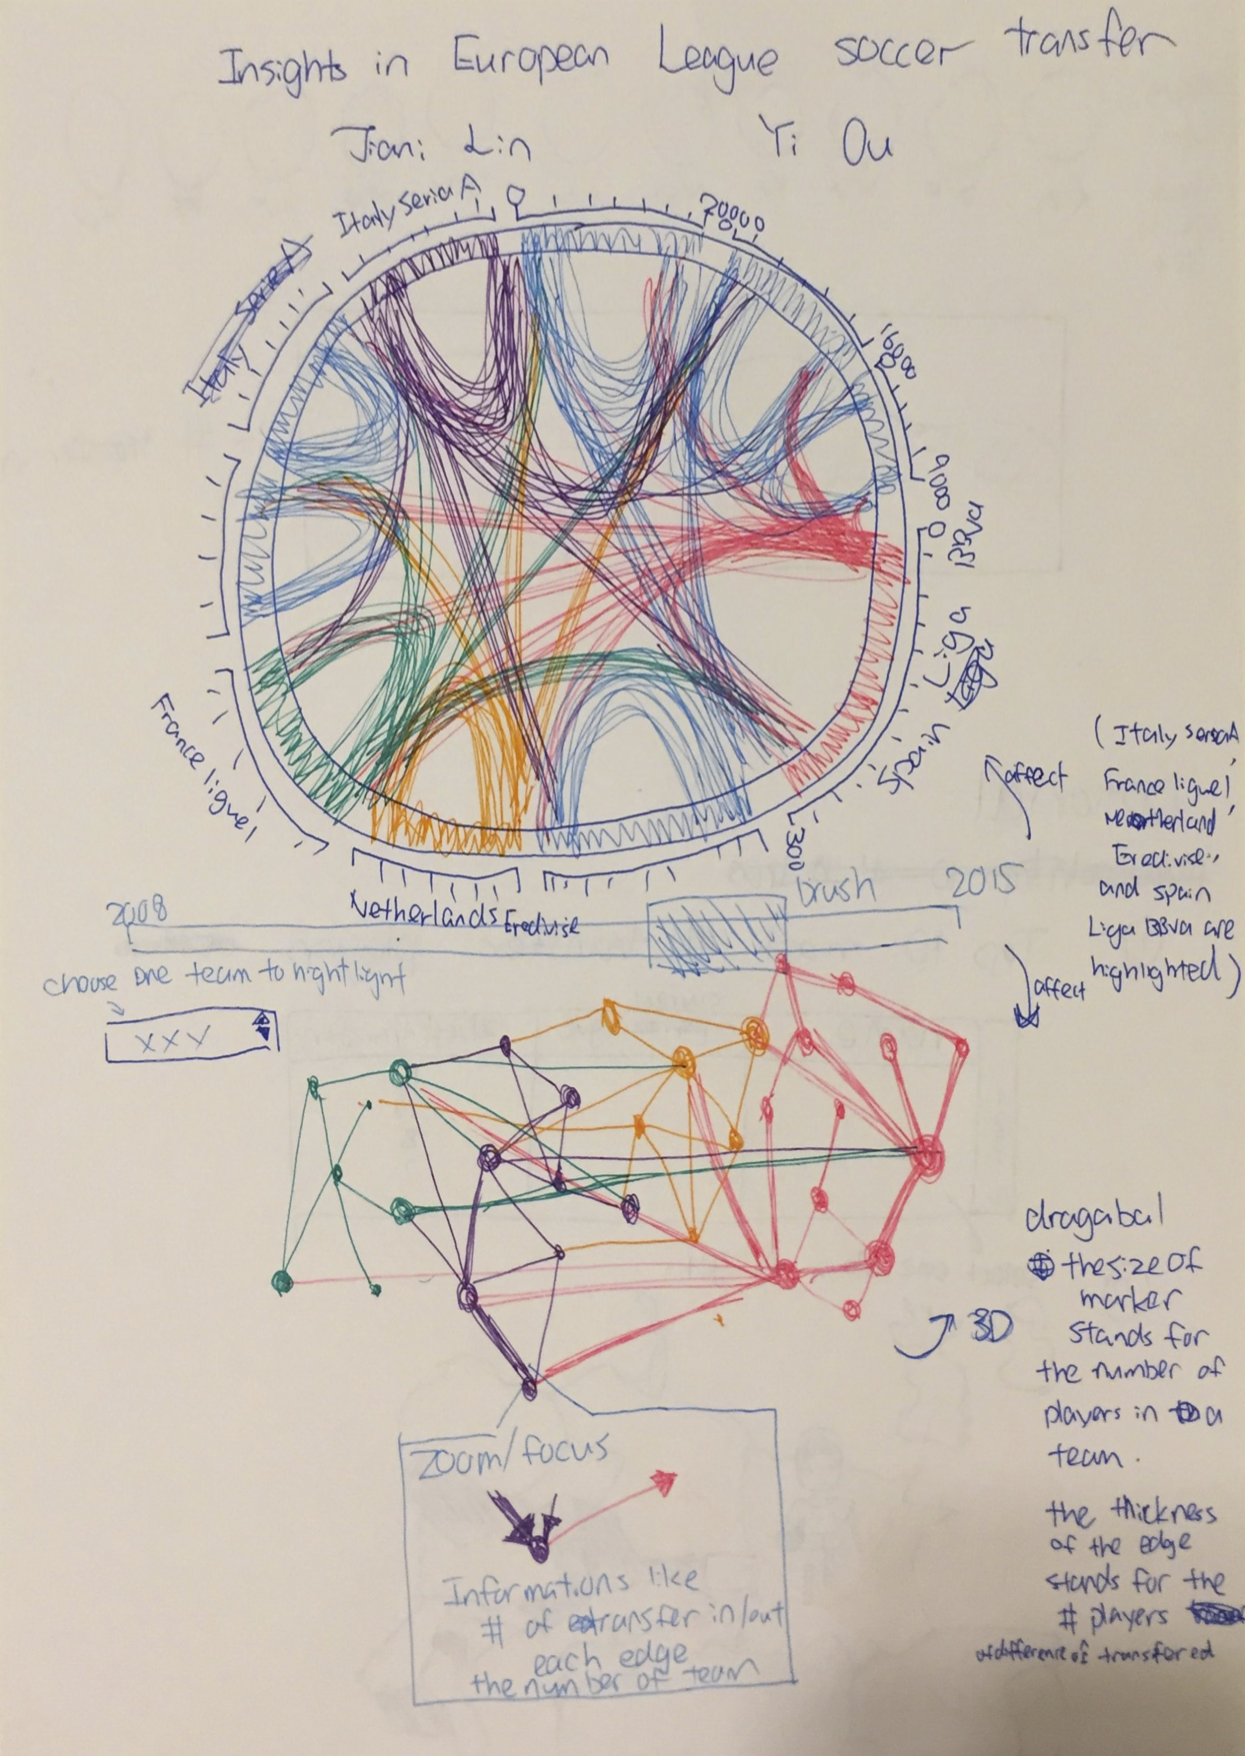 Insights in European League soccer transfer
Jiani Lin Yi Ou
Italy Seria A
0
20000
16000
10000
0
Italy SerieA
Spain Liga BBva
France ligue1
300
Netherlands Eredivise
(Italy SeriaA,
France ligue1,
netherland
Eredivise,
and spain
Liga BBva are
highlighted)
affect
affect
2008
brush
2015
choose one team to hightlight
XXY
dragabal
the size of
marker
stands for
the number of
players in a
team.
3D
the thickness
of the edge
stands for the
# players
of difference of transfered
zoom/focus
Informations like
# of transfer in/out
each edge
the number of team